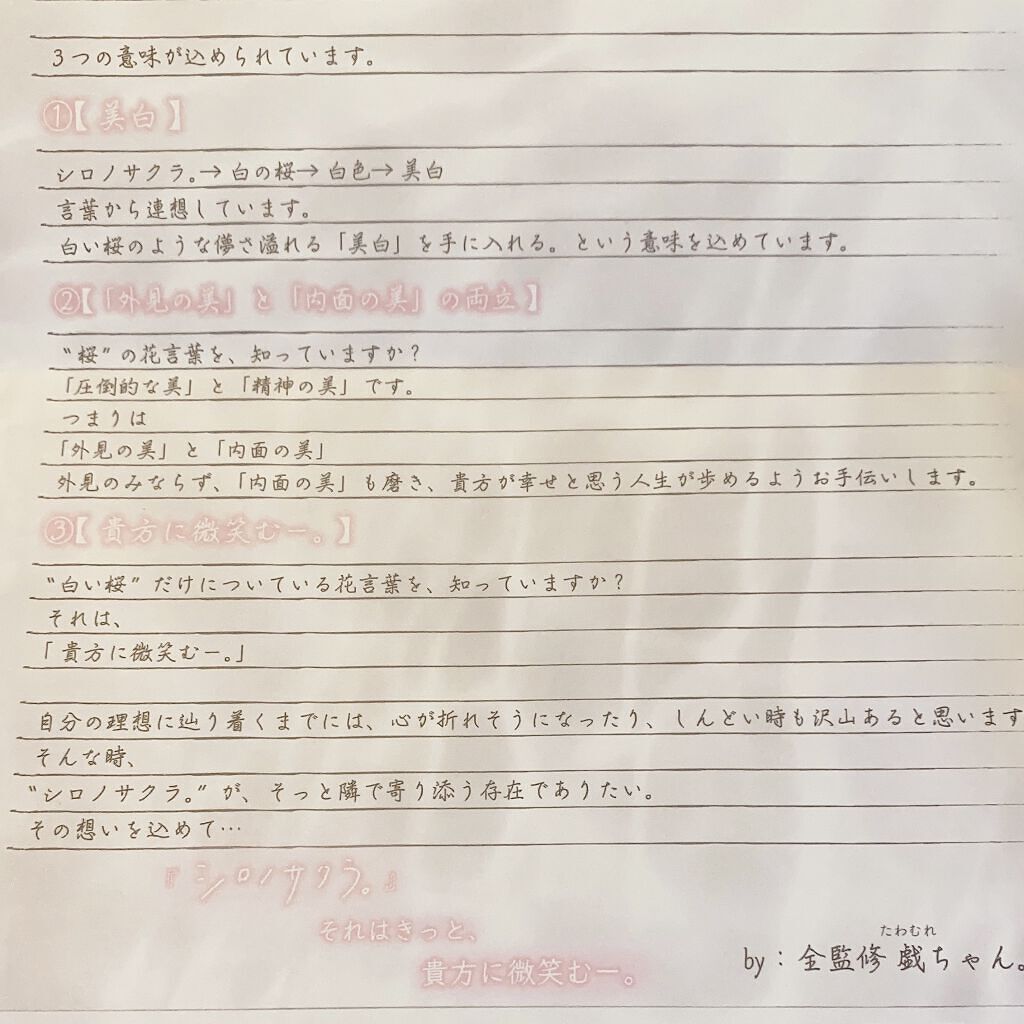 3つの意味が込められています。
①【美白】
シロノサクラ。→白の桜→白色→美白
言葉から連想しています。
白い桜のような儚さ溢れる「美白」を手に入れる。という意味を込めています。
②【「外見の美」と「内面の美」の両立】
"桜"の花言葉を、知っていますか?
「圧倒的な美」と「精神の美」です。
つまりは
「外見の美」と「内面の美」
外見のみならず、「内面の美」も磨き、貴方が幸せと思う人生が歩めるようお手伝いします。
③【貴方に微笑むー。】
"白い桜"だけについている花言葉を、知っていますか?
それは、
「貴方に微笑むー。」
自分の理想に辿り着くまでには、心が折れそうになったり、しんどい時も沢山あると思います
そんな時、
"シロノサクラ。"が、そっと隣で寄り添う存在でありたい。
その想いを込めて…
『シロノサクラ。』
それはきっと、
貴方に微笑むー。
たわむれ
by:全監修 戯ちゃん。